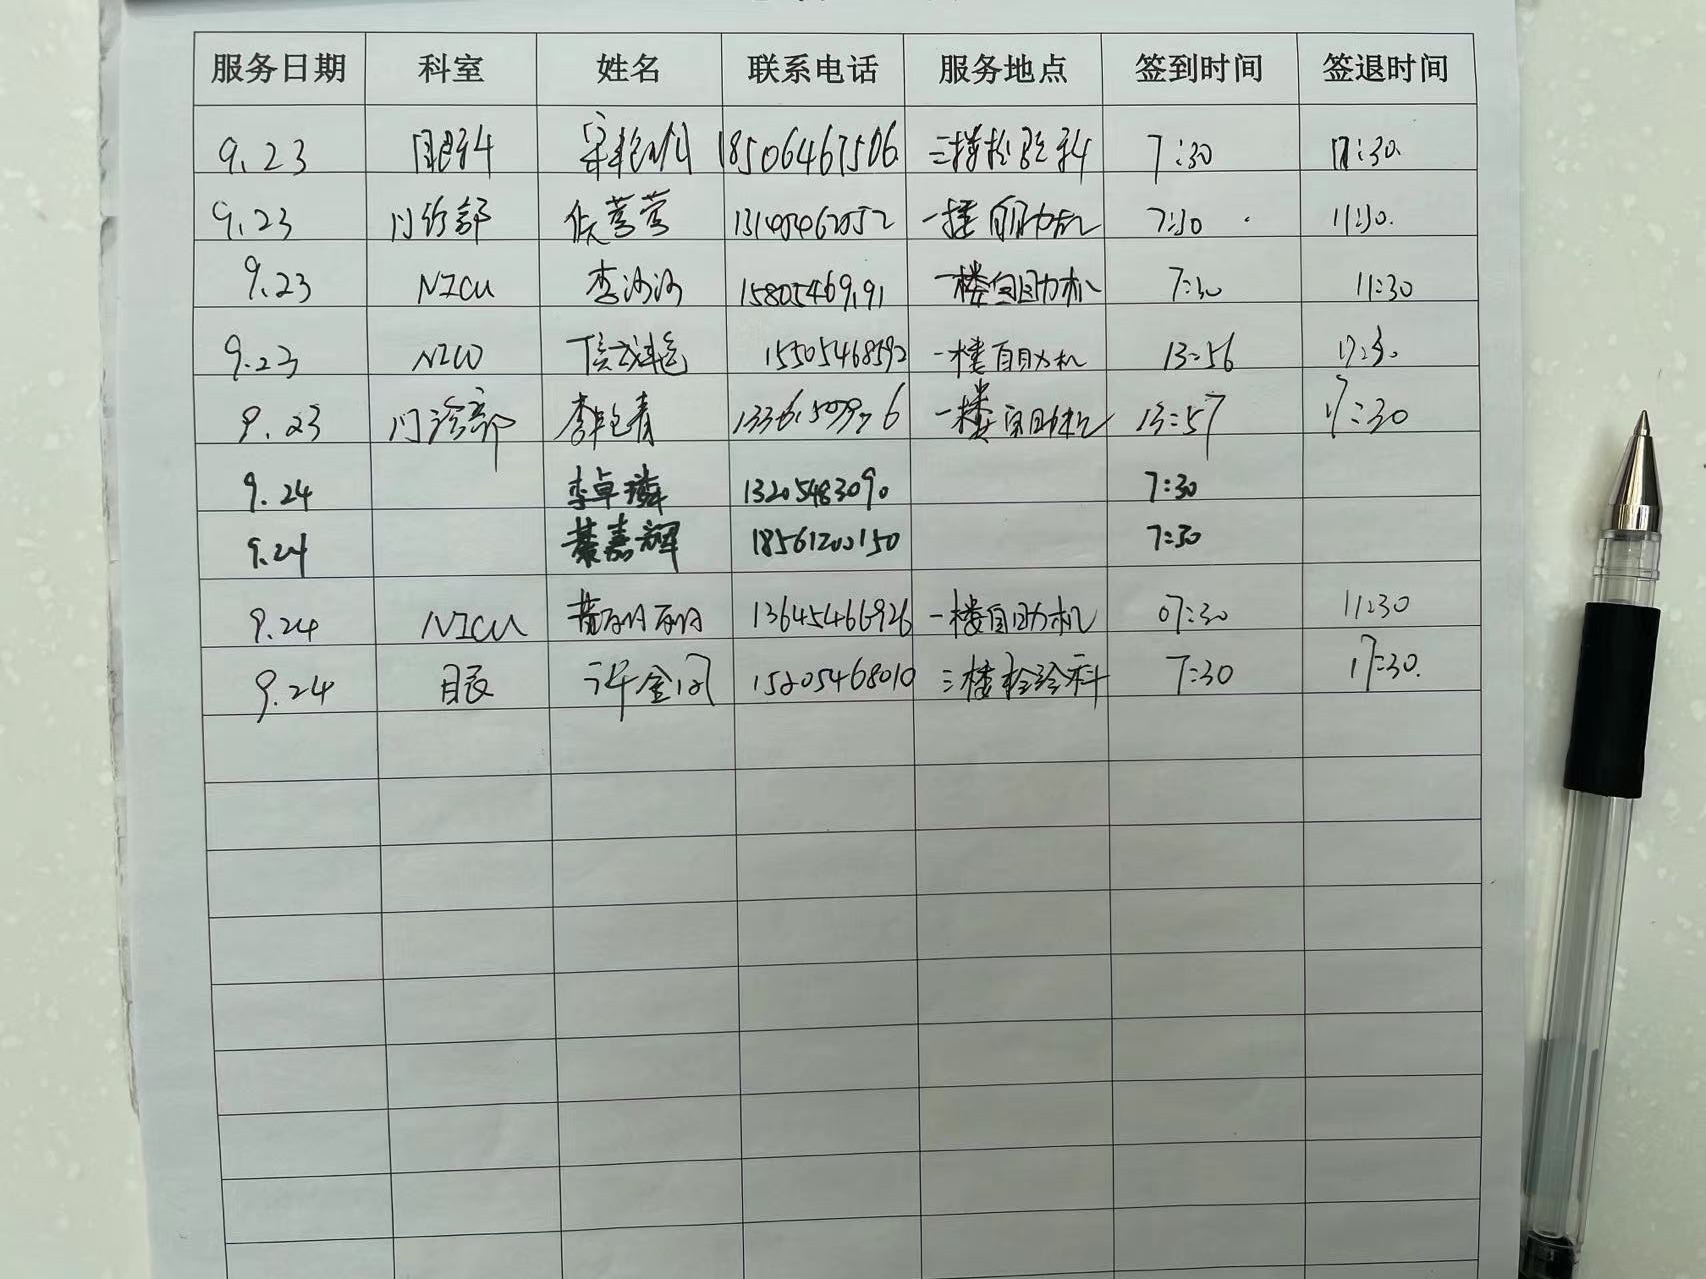 服务日期 科室 姓名 联系电话 服务地点 签到时间 签退时间
9.23 眼科 18506467506 三楼检验科 7:30 :30.
9.23 门诊部 侯莺莺 一楼自助机 7:30 11:30.
9.23 NICU 李沙沙 一楼自助机 7:30 11:30
9.23 NICU 一楼自助机 13:56 17:30
9.23 门诊部 李艳青 一楼自助机 13:57 17:30
9.24 李卓璘 13205483090 7:30
9.24 綦嘉辉 18561200150 7:30
9.24 NICU 13645466926 一楼自助机 07:30 11:30
9.24 眼 许金 15205468010 三楼检验科 7:30 17:30.